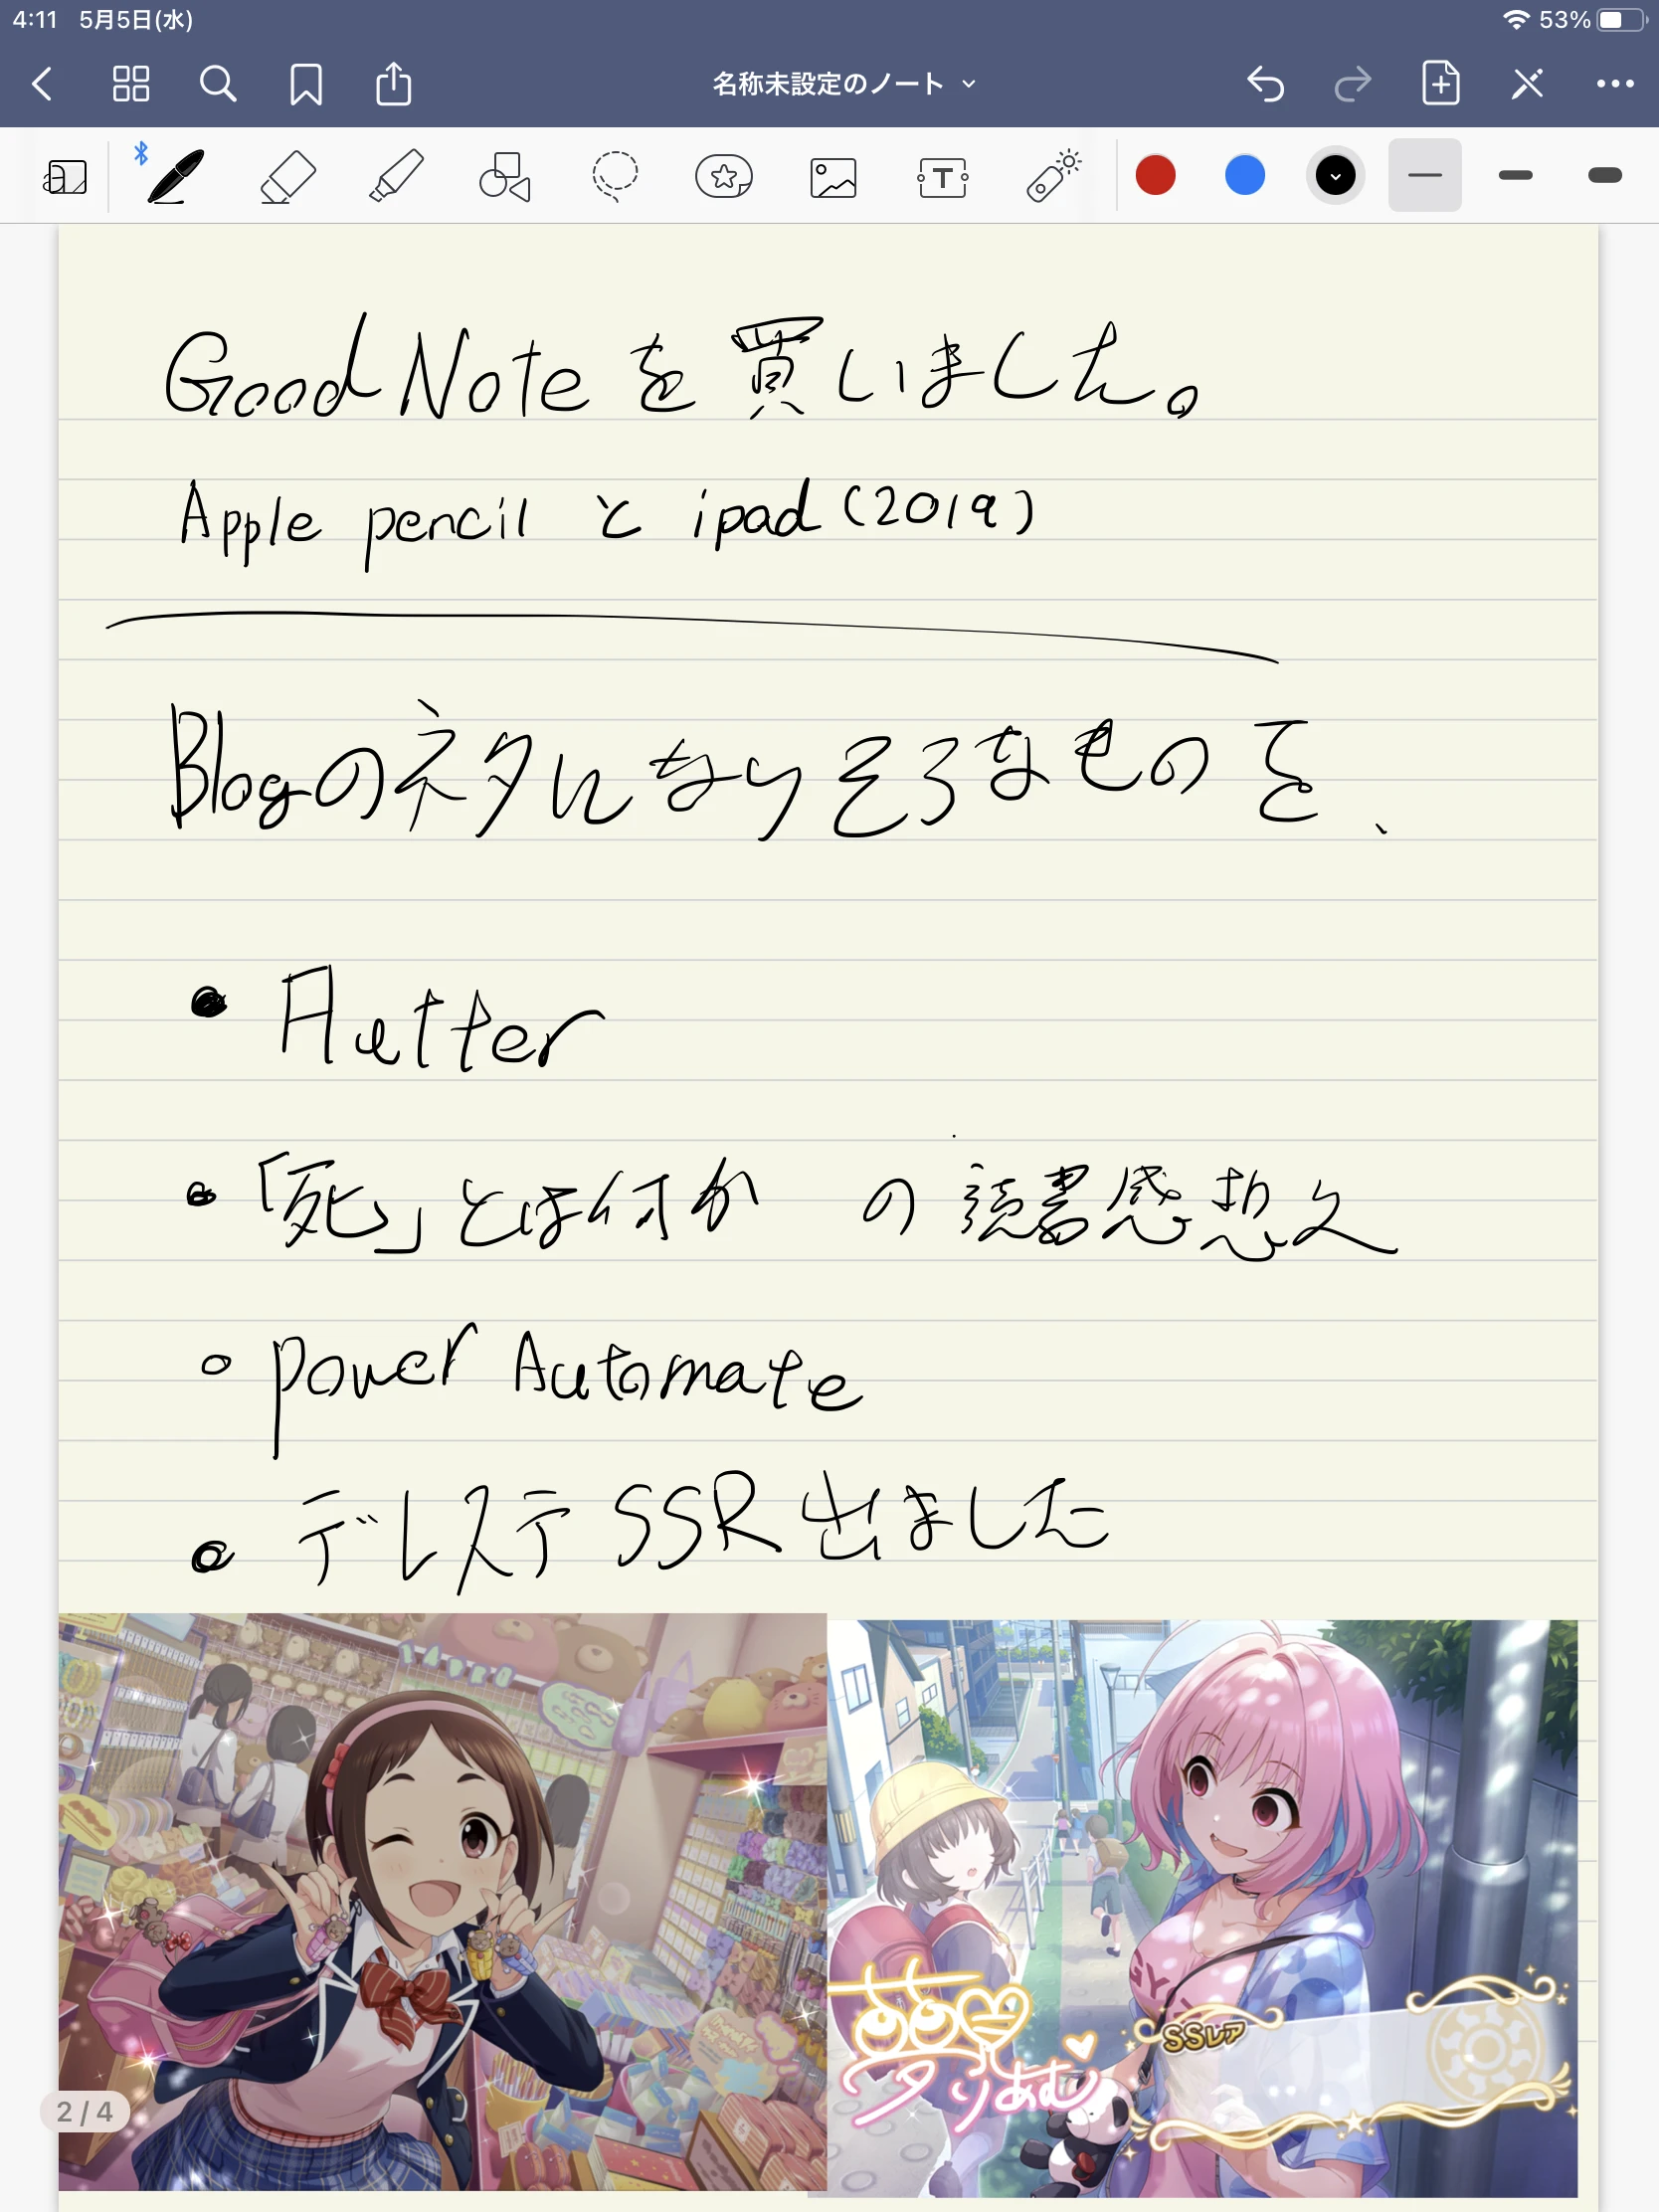 4:11 5月5日(水) 53%
名称未設定のノート
GoodNoteを買いました。
Apple pencil と ipad (2019)
Blogのネタになりそうなものを、
• Flutter
• 「死」とは何か の読書感想文
• Power Automate
• デレステ SSR 出ました
夢見りあむ
SSレア
2 / 4